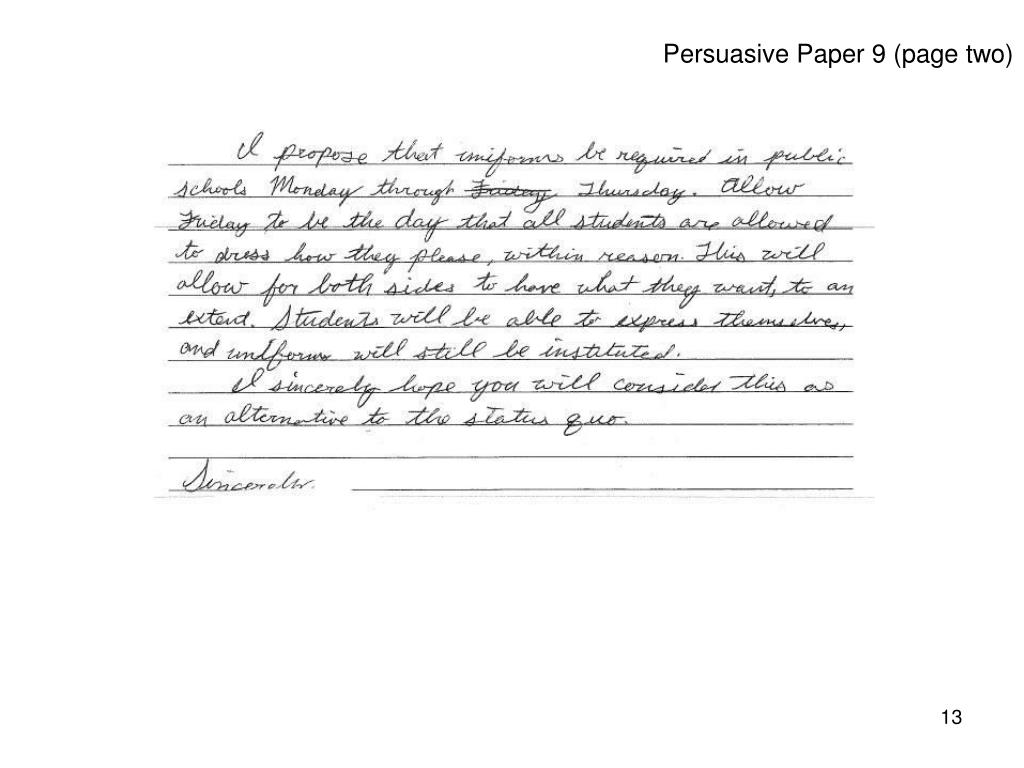 Persuasive Paper 9 (page two)
I propose that uniforms be required in public
schools Monday through Friday Thursday. Allow
Friday to be the day that all students are allowed
to dress how they please, within reason. This will
allow for both sides to have what they want, to an
extent. Students will be able to express themselves,
and uniforms will still be instituted.
I sincerely hope you will consider this as
an alternative to the status quo.
Sincerely.
13